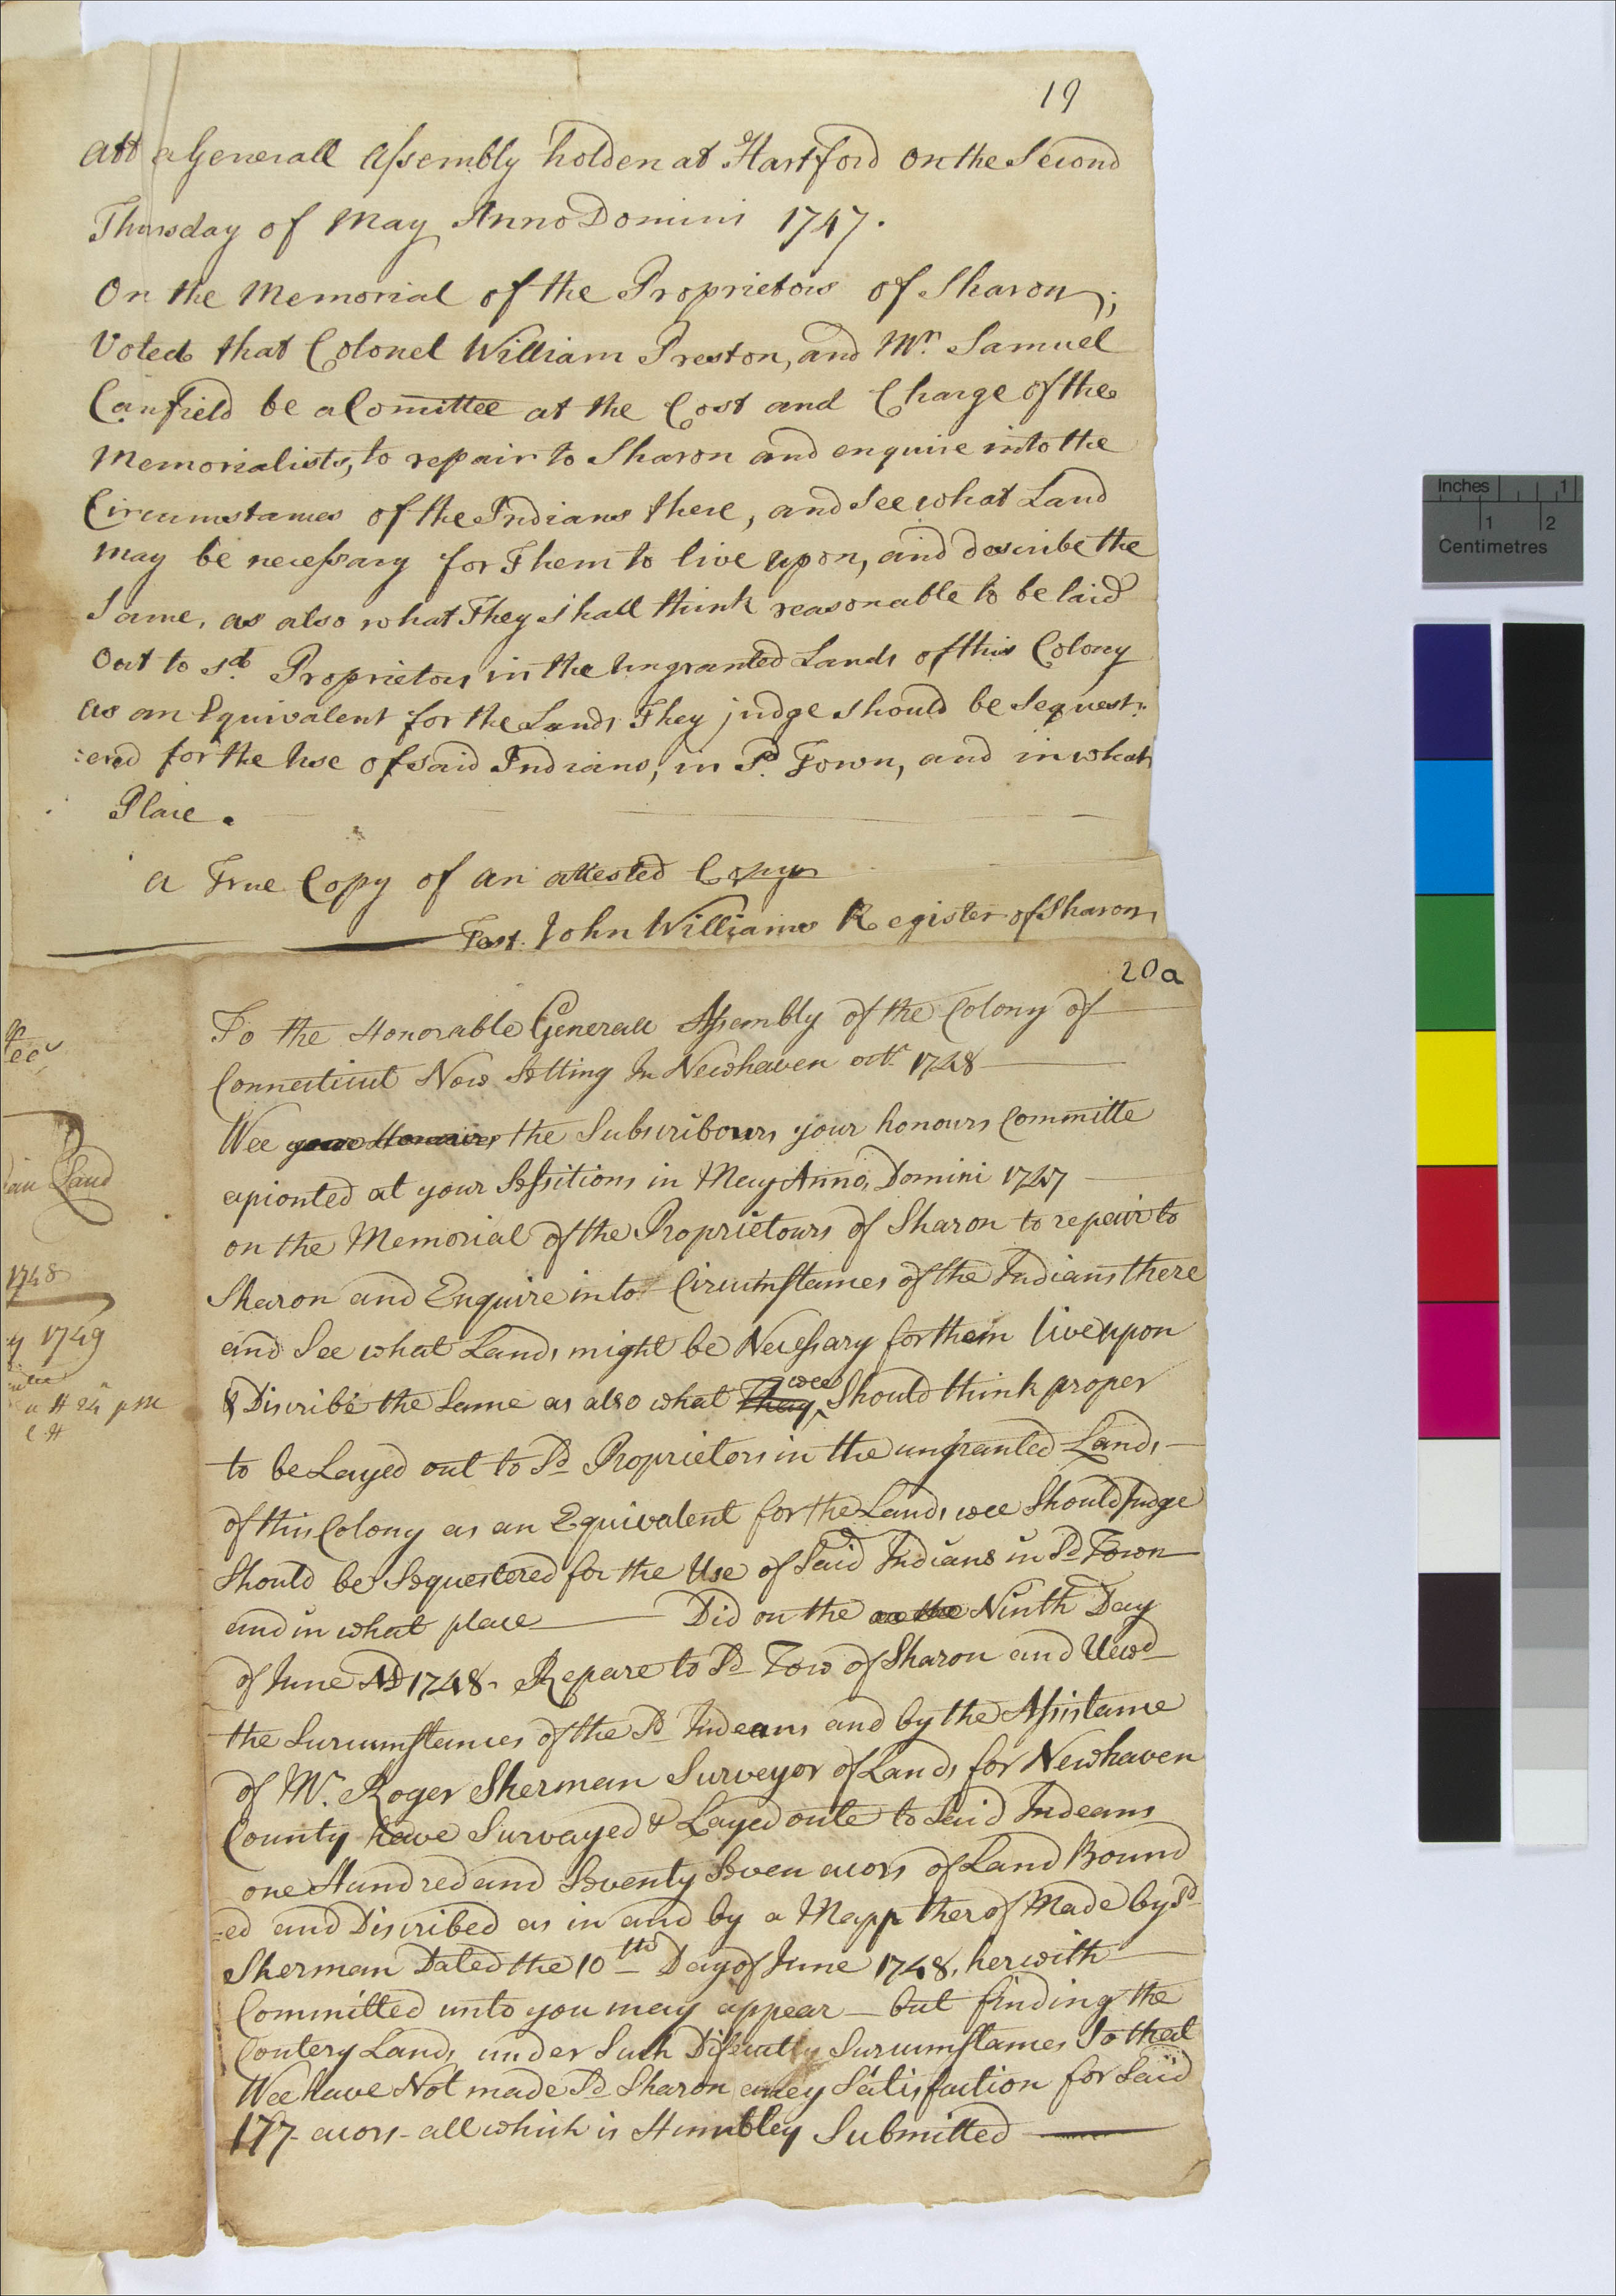 19
Att a Generall Assembly holden at Hartford on the Second
Thursday of May Anno Domini 1747.
On the Memorial of the Proprietors of Sharon;
Voted that Colonel William Preston, and Mr. Samuel
Canfield be a Comittee at the Cost and Charge of the
Memorialists, to repair to Sharon and enquire into the
Circumstances of the Indians there, and See what Land
may be necessary for Them to live upon, and describe the
Same, as also what They shall think reasonable to be laid
Out to sd. Proprietors in the Ungranted Lands of this Colony
as an Equivalent for the Lands They judge should be Sequest:
:ered for the Use of said Indians, in Sd. Town, and in what
Place.
A True Copy of an attested Copy
Test. John Williams Register of Sharon
20a
To the Honorable Generall Assembly of the Colony of
Connecticut Now Setting In Newhaven octr 1748
Wee your Honours the Subscribours your honours Committe
apionted at your Sessitions in May Anno Domini 1747
on the Memorial of the Proprietours of Sharon to repair to
Sharon and Enquire into Circumstances of the Indians there
and See what Lands might be Necessary for them live upon
& Discribe the Same as also what They wee Should think proper
to be Layed out to Sd Proprietors in the ungranted Lands
of this Colony as an Equivalent for the Lands wee Should Judge
Should be Sequestered for the Use of Said Indians in Sd Town
and in what place Did on the on the Ninth Day
of June AD 1748. Repare to Sd Tow of Sharon and Uewd
the Surcumstances of the Sd Indeans and by the Assistance
of Mr. Roger Sherman Surveyor of Lands for Newhaven
County have Survayed & Layed oute to Said Indeans
one Hundred and Seventy Seven acors of Land Bound
=ed and Discribed as in and by a Mapp therof Made by Sd
Sherman Dated the 10th Day of June 1748, herwith
Committed unto you may appear but finding the
Contery Lands under Such Difecutly Surcumstances So that
Wee have Not made Sd Sharon aney Satisfaction for Said
177 acors all which is Humbley Submitted
Land
1748
1749